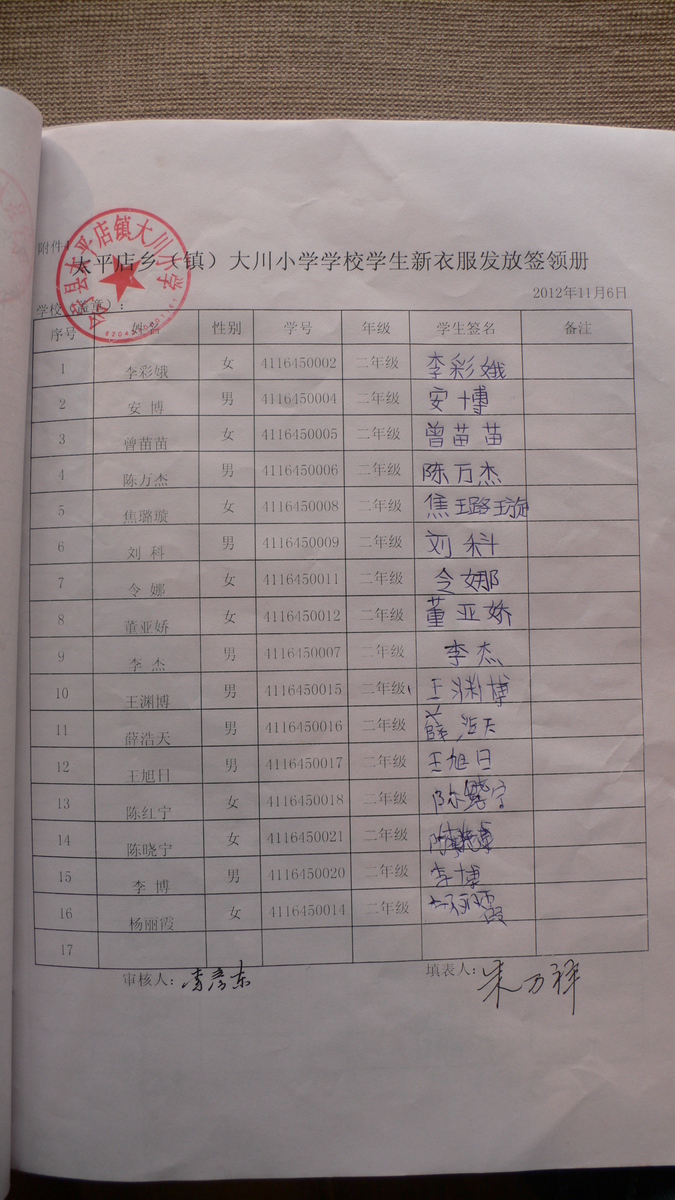 附件
太平店乡（镇）大川小学学校学生新衣服发放签领册
县太平店镇大川小学
2012年11月6日
学校（盖章）：
序号 姓名 性别 学号 年级 学生签名 备注
1 李彩娥 女 4116450002 二年级 李彩娥
2 安博 男 4116450004 二年级 安博
3 曾苗苗 女 4116450005 二年级 曾苗苗
4 陈万杰 男 4116450006 二年级 陈万杰
5 焦璐璇 女 4116450008 二年级 焦璐璇
6 刘科 男 4116450009 二年级 刘科
7 令娜 女 4116450011 二年级 令娜
8 董亚娇 女 4116450012 二年级 董亚娇
9 李杰 男 4116450007 二年级 李杰
10 王渊博 男 4116450015 二年级 王渊博
11 薛浩天 男 4116450016 二年级 薛浩天
12 王旭日 男 4116450017 二年级 王旭日
13 陈红宁 女 4116450018 二年级
14 陈晓宁 女 4116450021 二年级
15 李博 男 4116450020 二年级 李博
16 杨丽霞 女 4116450014 二年级
17
审核人：李彦东 填表人：朱万祥